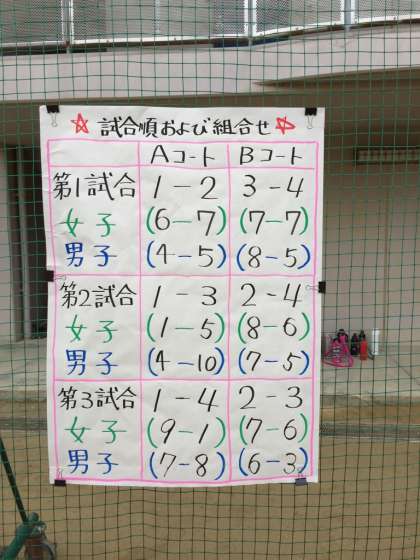 ☆ 試合順および組合せ ☆
Aコート Bコート
第1試合 1-2 3-4
女子 (6-7) (7-7)
男子 (4-5) (8-5)
第2試合 1-3 2-4
女子 (1-5) (8-6)
男子 (4-10) (7-5)
第3試合 1-4 2-3
女子 (9-1) (7-6)
男子 (7-8) (6-3)